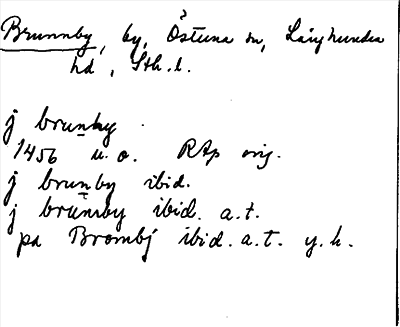 Brunnby, by, Östuna sn, Långhundra
hd, Sth. l.
j brunby
1456 u. o. RAp orig.
j brunby ibid.
j brūmby ibid. a. t.
pa Brombj ibid. a. t. y. h.